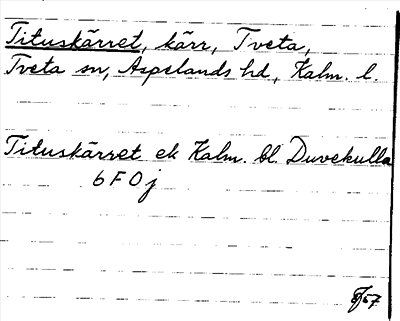 Tituskärret, kärr, Tveta,
Tveta sn, Aspelands hd, Kalm. l.
Tituskärret ek Kalm. bl. Duvekulla
6 F 0 j